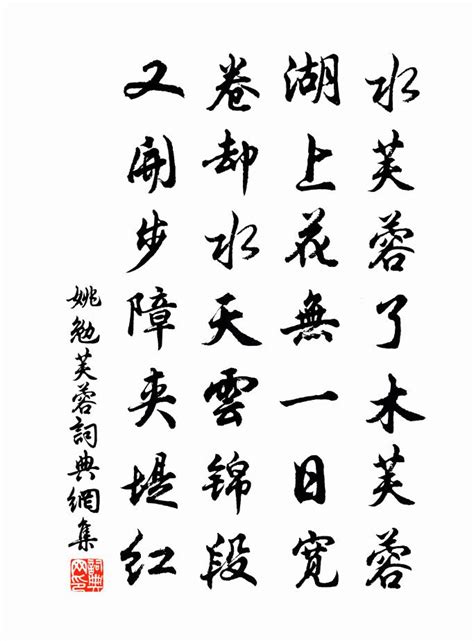 水芙蓉了木芙蓉
湖上花無一日寬
卷却水天雲錦段
又開步障夾堤紅
姚勉芙蓉詞典網集
詞典网印